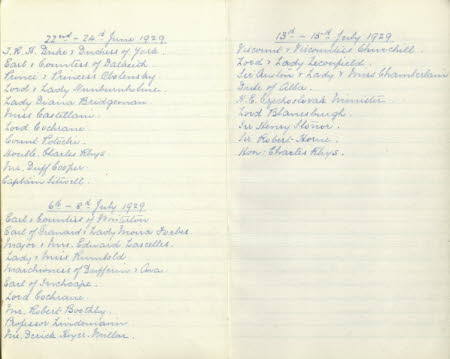 22nd - 24th June 1929
T.R.H. Duke & Duchess of York.
Earl & Countess of Dalkeith
Prince & Princess Obolensky
Lord & Lady Nunburnholme
Lady Diana Bridgeman
Miss Castellane
Lord Cochrane
Count Potocki
Honble. Charles Rhys
Mr. Duff Cooper
Captain Sitwell.
6th - 8th July 1929
Earl & Countess of Winterton
Earl of Granard & Lady Moira Forbes
Major & Mrs. Edward Lascelles
Lady & Miss Rumbold
Marchioness of Dufferin & Ava
Earl of Inchcape
Lord Cochrane
Mr. Robert Boothby
Professor Lindemann
Mr. Derick Hoyer-Millar.
13th - 15th July 1929
Viscount & Viscountess Churchill.
Lord & Lady Leconfield.
Sir Austen & Lady & Miss Chamberlain
Duke of Alba.
H.E. Czechoslovak Minister
Lord Blanesburgh.
Sir Henry Stonor.
Sir Robert Horne.
Hon: Charles Rhys.